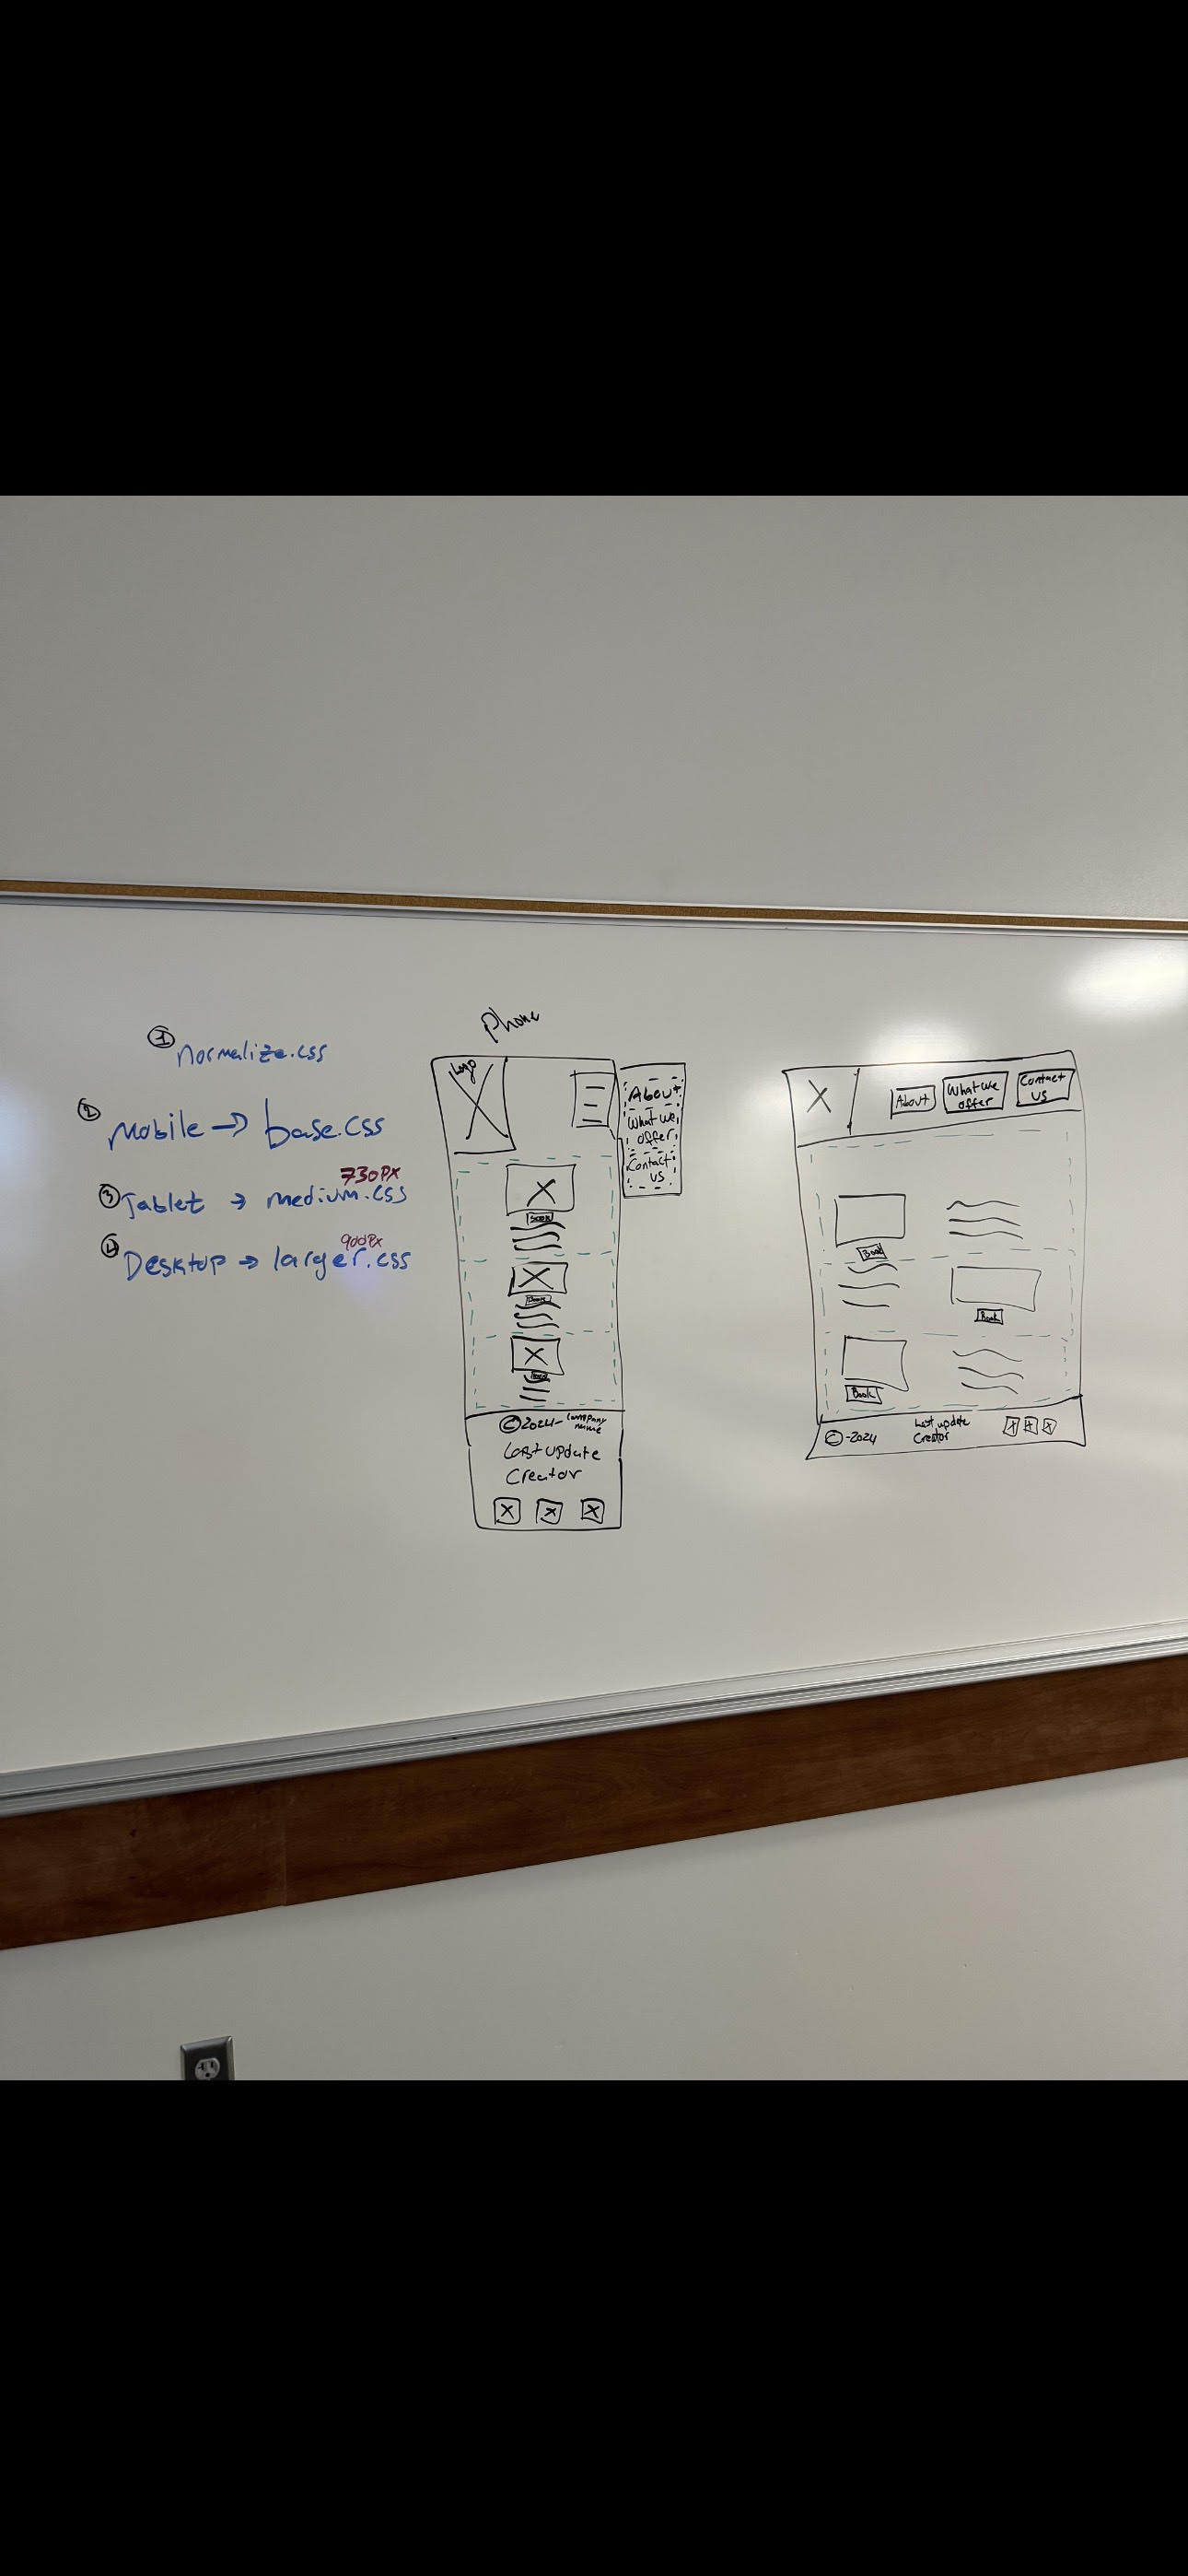 ① normalize.css
② Mobile → base.css
730PX
③ Tablet → medium.css
900PX
④ Desktop → larger.css
Phone
Logo
About
What we
offer
Contact
us
Book
Book
Book
© 2024 - Company
name
Last update
Creator
About
What we
offer
Contact
us
Book
Book
Book
© - 2024
Last update
Creator